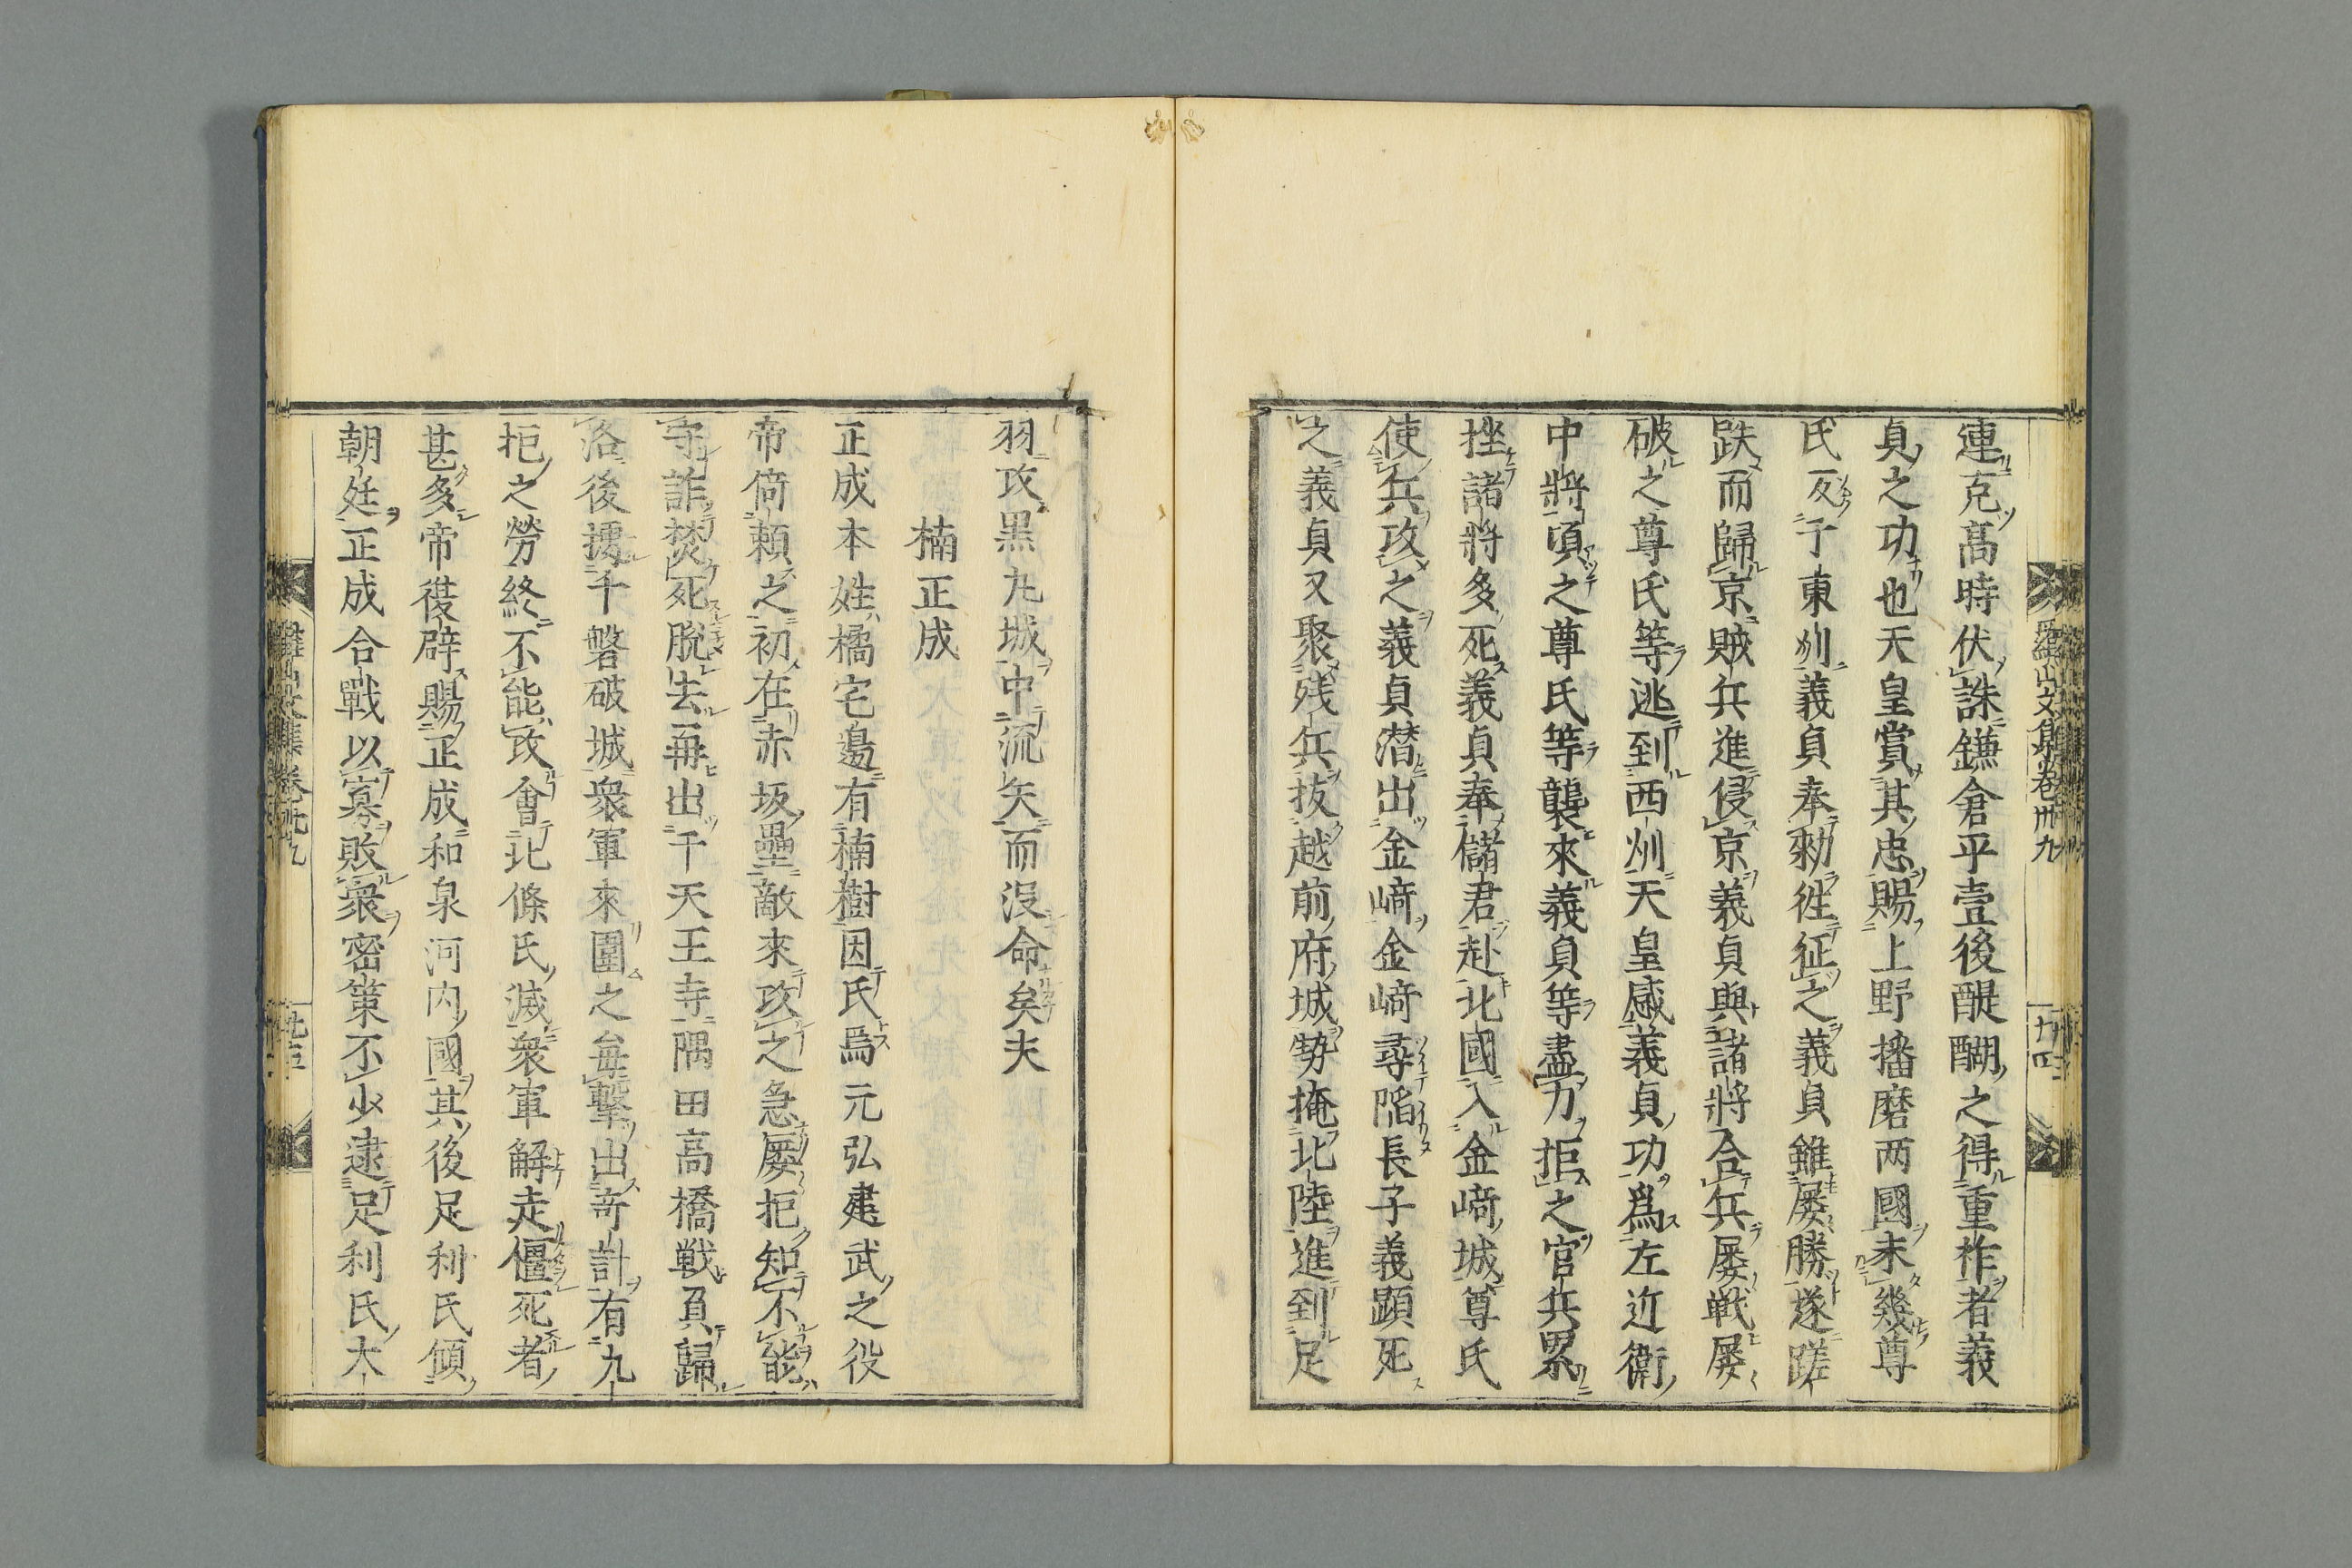 羅山文集卷卅九
廿四
連克高時伏誅鎌倉平壹後醍醐之得重祚者義
貞之功也天皇賞其忠賜上野播磨两國未幾尊
氏反于東刕義貞奉勅徃征之義貞雖屡勝遂蹉
跌而歸京賊兵進侵京義貞與諸將合兵屡戦屡
破之尊氏等逃到西刕天皇感義貞功爲左近衛
中將頃之尊氏等襲來義貞等盡力拒之官兵累
挫諸將多死義貞奉儲君赴北國入金﨑城尊氏
使兵攻之義貞潜出金﨑金﨑尋陷長子義顕死
之義貞又聚残兵抜越前府城勢掩北陸進到足
羽攻黒丸城中流矢而没命矣夫
楠正成
正成本姓橘宅邉有楠樹因氏焉元弘建武之役
帝倚頼之初在赤坂壘敵來攻之急屡拒知不能
守詐焚死脱去再出于天王寺隅田高橋戦負歸
洛後據千磐破城衆軍來圍之毎撃出竒計有九
拒之勞終不能攻會北條氏滅衆軍解走僵死者
甚多帝復辟賜正成和泉河内國其後足利氏傾
朝廷正成合戰以寡敗衆密策不少逮足利氏大
羅山文集卷卅九